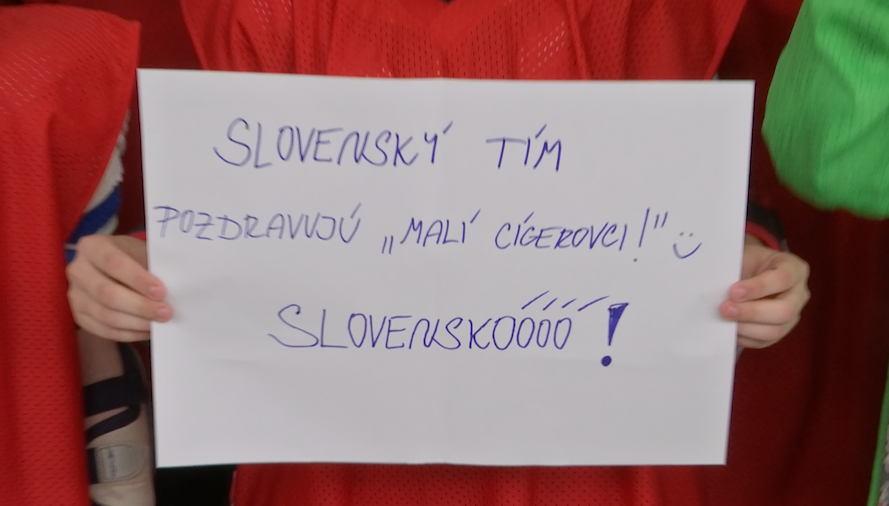 SLOVENSKÝ TÍM
POZDRAVUJÚ „MALÍ CÍGEROVCI!" :)
SLOVENSKOÓÓÓ!